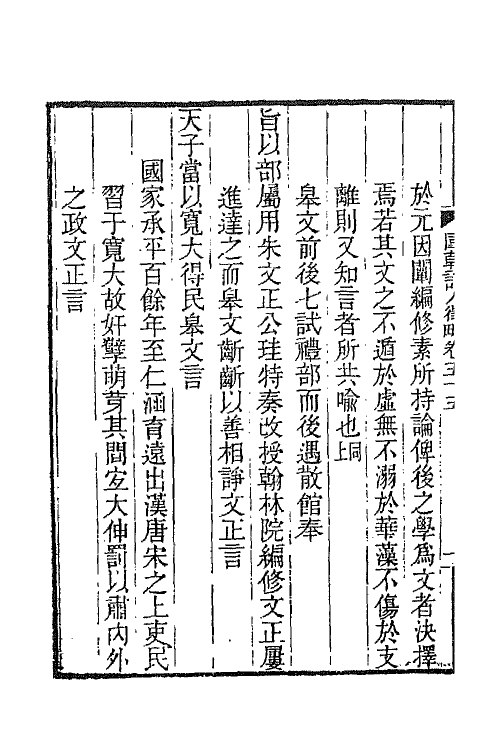 國朝詩人徵略卷五十五
於元因闡編修素所持論俾後之學爲文者決擇
焉若其文之不遁於虛無不溺於華藻不傷於支
離則又知言者所共喩也同上
皋文前後七試禮部而後遇散館奉
旨以部屬用朱文正公珪特奏改授翰林院編修文正屢
進達之而皋文齗齗以善相諍文正言
天子當以寬大得民皋文言
國家承平百餘年至仁涵育遠出漢唐宋之上吏民
習于寬大故奸孽萌芽其間宐大伸罰以肅內外
之政文正言